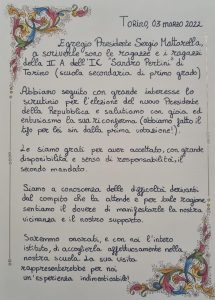 Torino, 03 marzo 2022
Egregio Presidente Sergio Mattarella,
a scriverle sono le ragazze e i ragazzi
della II A dell'IC "Sandro Pertini" di
Torino (scuola secondaria di primo grado)
Abbiamo seguito con grande interesse lo
scrutinio per l'elezione del nuovo Presidente
della Repubblica e salutiamo con gioia ed
entusiasmo la sua riconferma (abbiamo fatto il
tifo per lei sin dalla prima votazione!).
Le siamo grati per aver accettato, con grande
disponibilità e senso di responsabilità, il
secondo mandato
Siamo a conoscenza delle difficoltà derivanti
dal compito che la attende e per tale ragione
sentiamo il dovere di manifestarle la nostra
vicinanza e il nostro supporto.
Saremmo onorati, e con noi l'intero
istituto, di accoglierla affettuosamente nella
nostra scuola. La sua visita
rappresenterebbe per noi
un'esperienza indimenticabile!